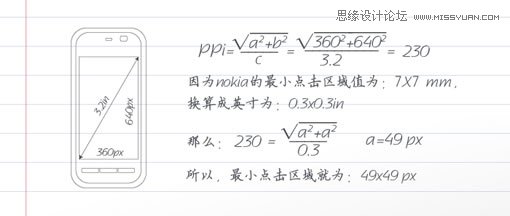 思缘设计论坛 WWW.MISSYUAN.COM
3.2in
640px
360px
ppi=√(a²+b²)/c=√(360²+640²)/3.2= 230
因为nokia的最小点击区域值为：7X7 mm,
换算成英寸为：0.3x0.3in
那么：230 = √(a²+a²)/0.3 a=49 px
所以，最小点击区域就为：49x49 px